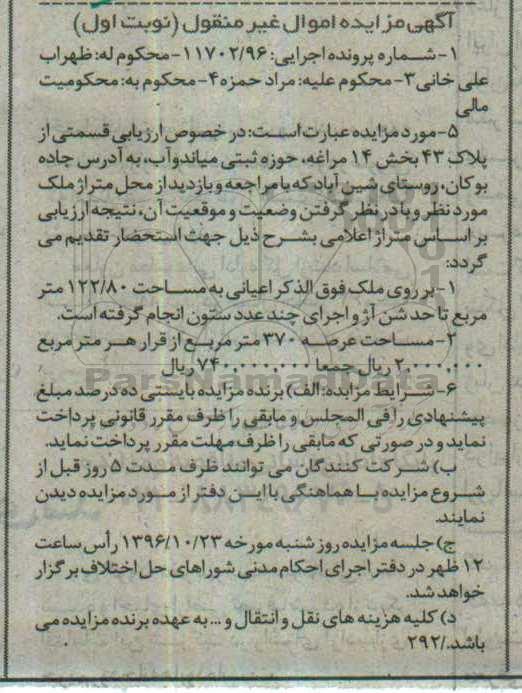 آگهی مزایده اموال غیر منقول (نوبت اول)
۱-شماره پرونده اجرایی: ۱۱۷۰۲/۹۶-محکوم له: ظهراب
علی خانی ۳-محکوم علیه: مراد حمزه ۴-محکوم به: محکومیت
مالی
۵-مورد مزایده عبارت است: در خصوص ارزیابی قسمتی از
پلاک ۴۳ بخش ۱۴ مراغه، حوزه ثبتی میاندوآب، به آدرس جاده
بوکان، روستای شین آباد که با مراجعه و بازدید از محل متراژ ملک
مورد نظر و با در نظر گرفتن وضعیت و موقعیت آن، نتیجه ارزیابی
بر اساس متراژ اعلامی بشرح ذیل جهت استحضار تقدیم می
گردد:
۱-بر روی ملک فوق الذکر اعیانی به مساحت ۱۲۲/۸۰ متر
مربع تا حد شن آژ و اجرای چند عدد ستون انجام گرفته است.
۲-مساحت عرصه ۳۷۰ متر مربع از قرار هر متر مربع
۲,۰۰۰,۰۰۰ ریال جمعا ۷۴۰,۰۰۰,۰۰۰ ریال
ParsNamadData
۶-شرایط مزایده: الف) برنده مزایده بایستی ده درصد مبلغ
پیشنهادی را فی المجلس و مابقی را ظرف مقرر قانونی پرداخت
نماید و در صورتی که مابقی را ظرف مهلت مقرر پرداخت نماید.
ب) شرکت کنندگان می توانند ظرف مدت ۵ روز قبل از
شروع مزایده با هماهنگی با این دفتر از مورد مزایده دیدن
نمایند.
ج) جلسه مزایده روز شنبه مورخه ۱۳۹۶/۱۰/۲۳ رأس ساعت
۱۲ ظهر در دفتر اجرای احکام مدنی شوراهای حل اختلاف برگزار
خواهد شد.
د) کلیه هزینه های نقل و انتقال و ... به عهده برنده مزایده می
باشد./۲۹۲